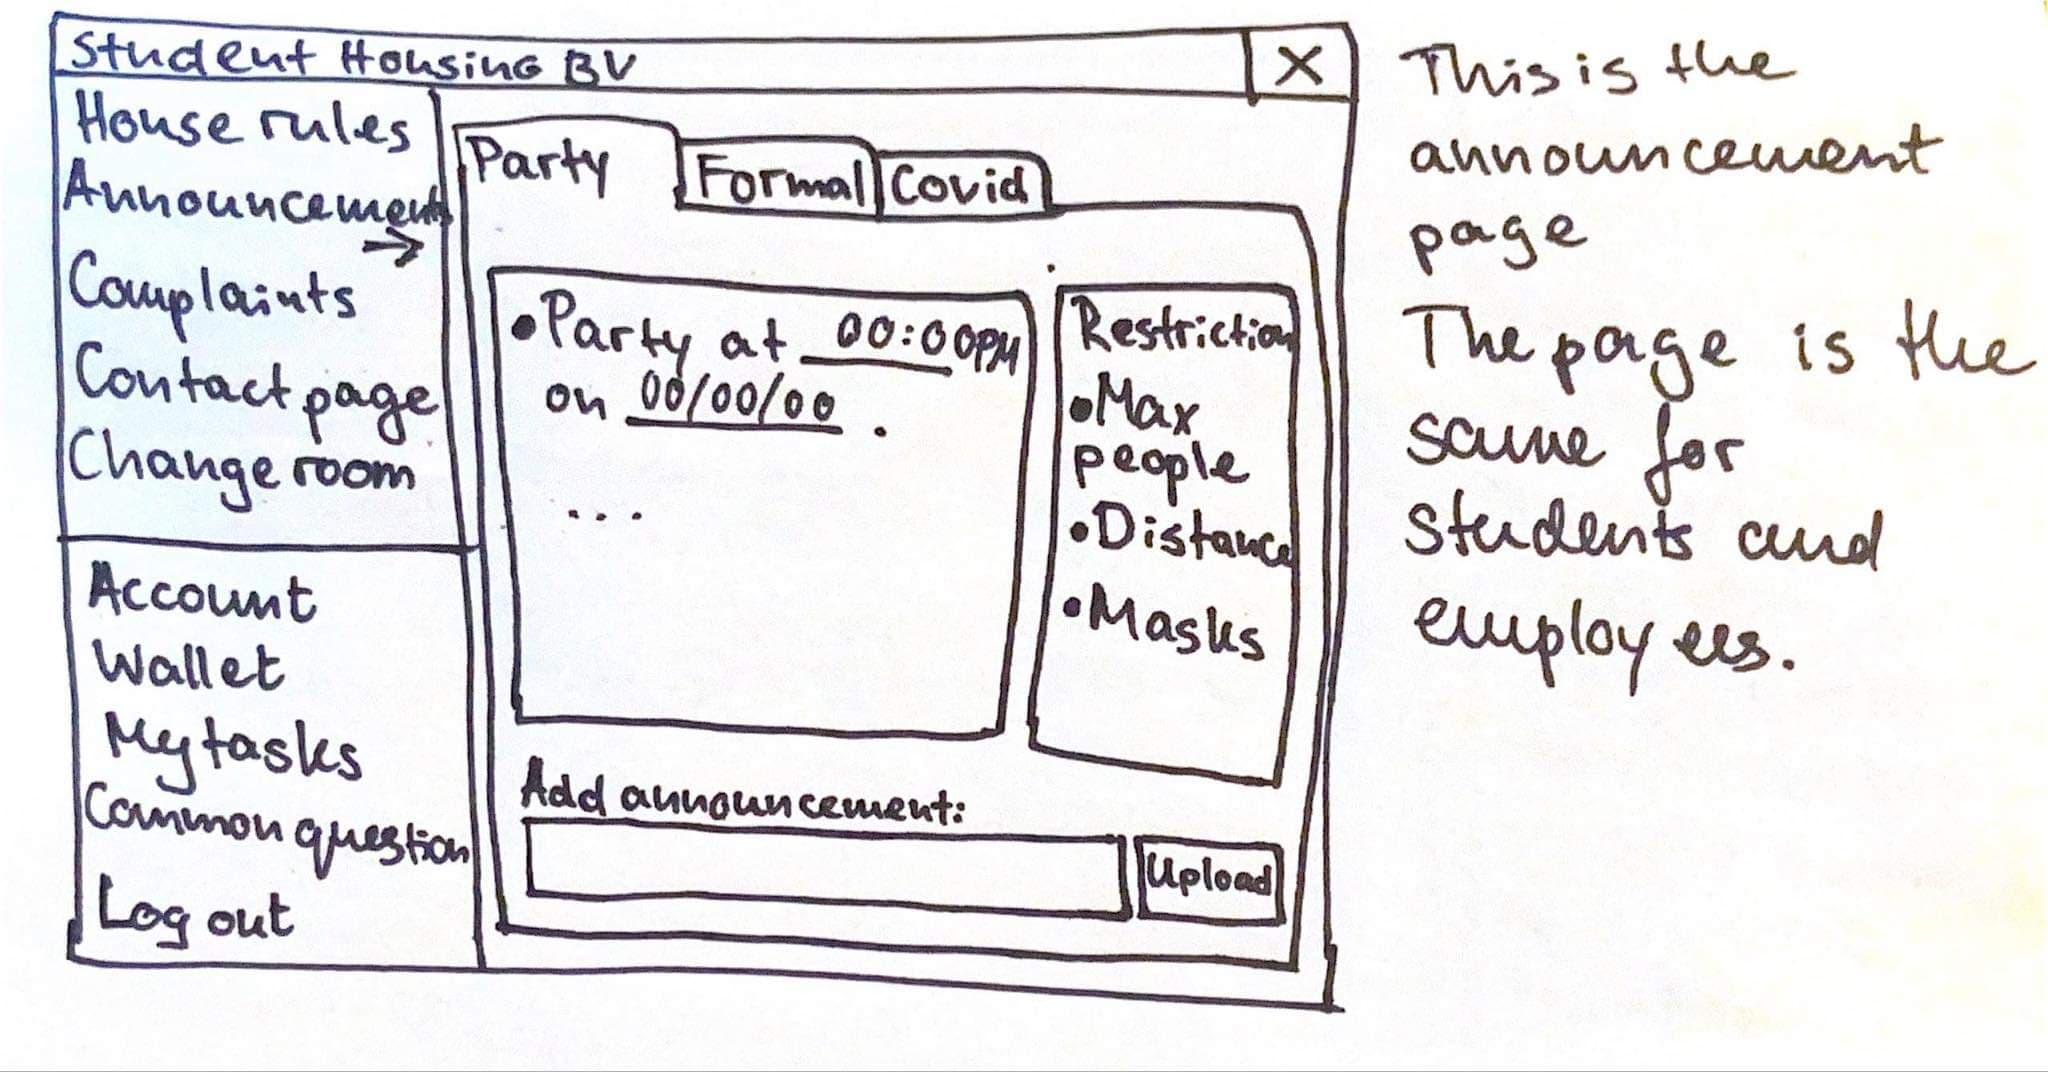 Student Housing BV
X
House rules
Announcements
→
Complaints
Contact page
Change room
Account
Wallet
My tasks
Common question
Log out
Party
Formal
Covid
• Party at 00:00PM
on 00/00/00 .
...
Restriction
• Max
people
• Distance
• Masks
Add announcement:
Upload
This is the
announcement
page
The page is the
same for
students and
employees.